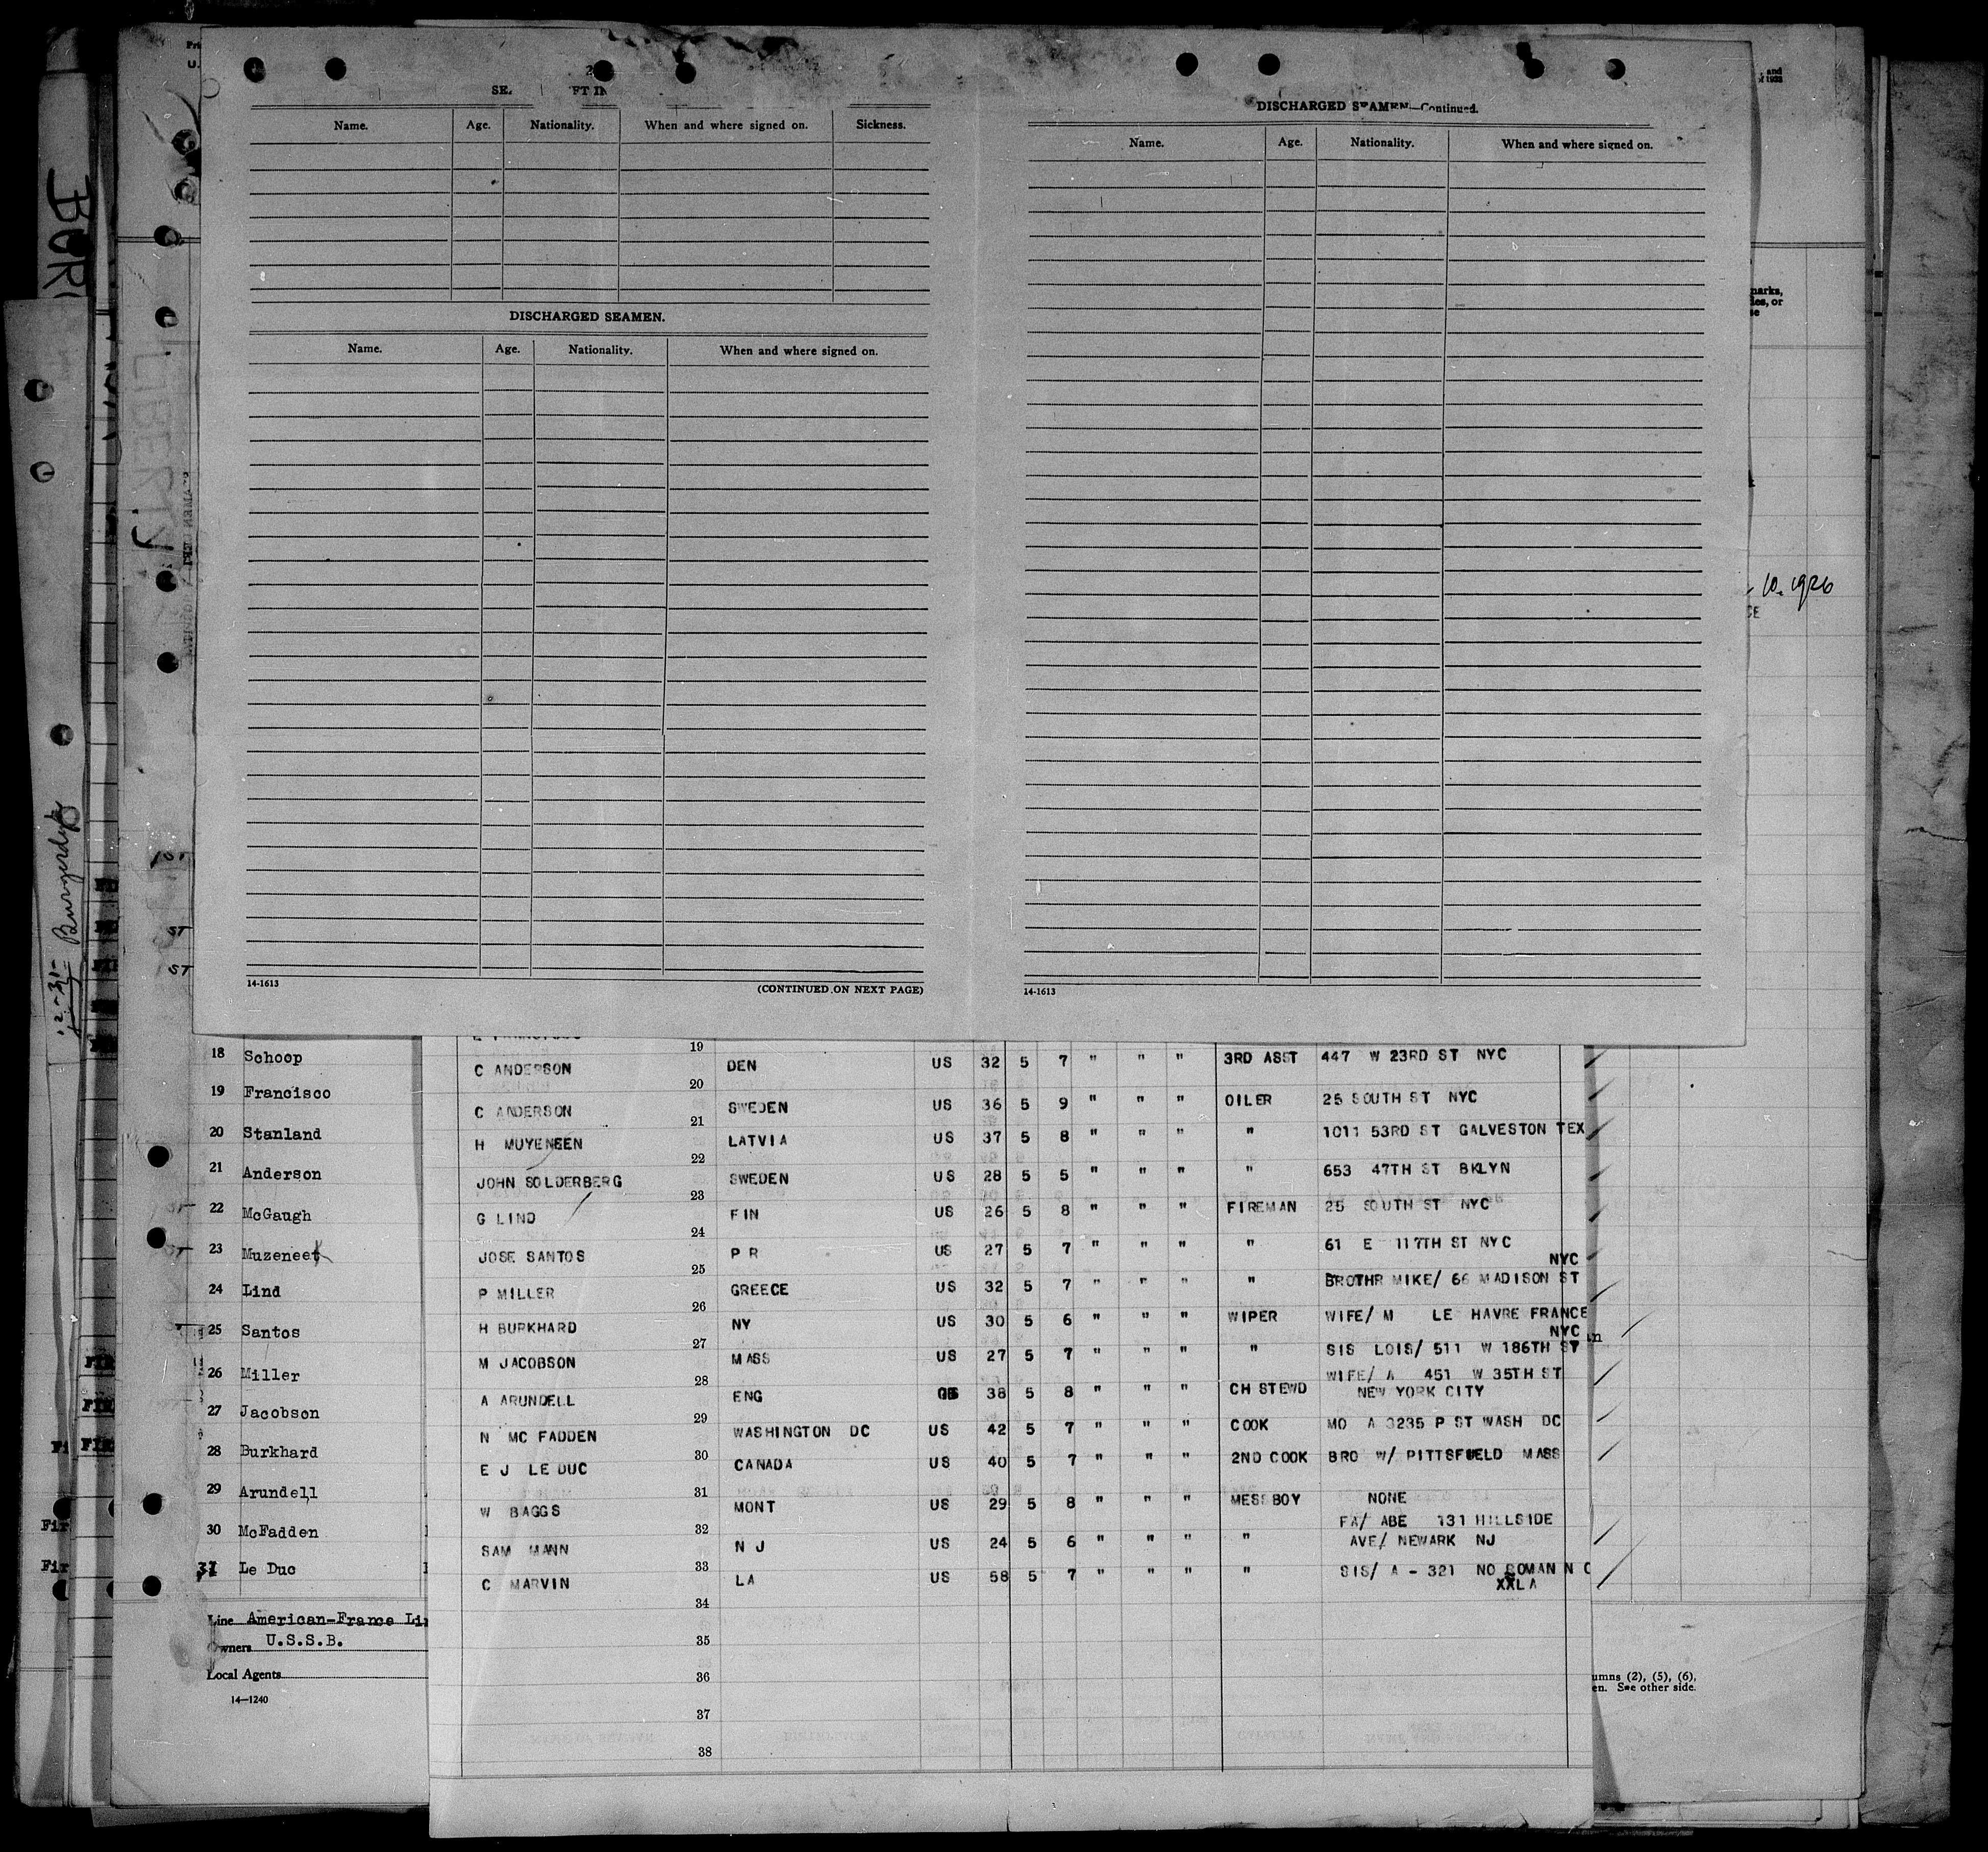 DISCHARGED SEAMEN—Continued.
Name. Age. Nationality. When and where signed on. Sickness.
Name. Age. Nationality. When and where signed on.
DISCHARGED SEAMEN.
Name. Age. Nationality. When and where signed on.
14-1613
(CONTINUED ON NEXT PAGE)
14-1613
10. 1926
12-31- Burgerdyk
LIBERTY
18 Schoop
19 Francisco
20 Stanland
21 Anderson
22 McGaugh
23 Muzeneek
24 Lind
25 Santos
26 Miller
27 Jacobson
28 Burkhard
29 Arundell
30 McFadden
31 Le Duc
Line American-France Li
Owners U.S.S.B.
Local Agents
14—1240
19
C ANDERSON DEN US 32 5 7 " " " 3RD ASST 447 W 23RD ST NYC
20
C ANDERSON SWEDEN US 36 5 9 " " " OILER 25 SOUTH ST NYC
21
H MUYENEEN LATVIA US 37 5 8 " " " " 1011 53RD ST GALVESTON TEX
22
JOHN SOLDERBERG SWEDEN US 28 5 5 " " " " 653 47TH ST BKLYN
23
G LIND FIN US 26 5 8 " " " FIREMAN 25 SOUTH ST NYC
24
JOSE SANTOS P R US 27 5 7 " " " " 61 E 117TH ST NYC
25
NYC
P MILLER GREECE US 32 5 7 " " " " BROTHR MIKE/ 66 MADISON ST
26
H BURKHARD NY US 30 5 6 " " " WIPER WIFE/ M LE HAVRE FRANCE
27
NYC
M JACOBSON MASS US 27 5 7 " " " " SIS LOIS/ 511 W 186TH ST
28
WIFE/ A 451 W 35TH ST
A ARUNDELL ENG 38 5 8 " " " CH STEWD NEW YORK CITY
29
N MC FADDEN WASHINGTON DC US 42 5 7 " " " COOK MO A 3235 P ST WASH DC
30
E J LE DUC CANADA US 40 5 7 " " " 2ND COOK BRO W/ PITTSFIELD MASS
31
W BAGGS MONT US 29 5 8 " " " MESSBOY NONE
32
FA/ ABE 131 HILLSIDE
SAM MANN N J US 24 5 6 " " " " AVE/ NEWARK NJ
33
C MARVIN LA US 58 5 7 " " " " SIS/ A - 321 NO ROMAN N O
XXLA
34
35
36
37
38
umns (2), (5), (6),
en. See other side.